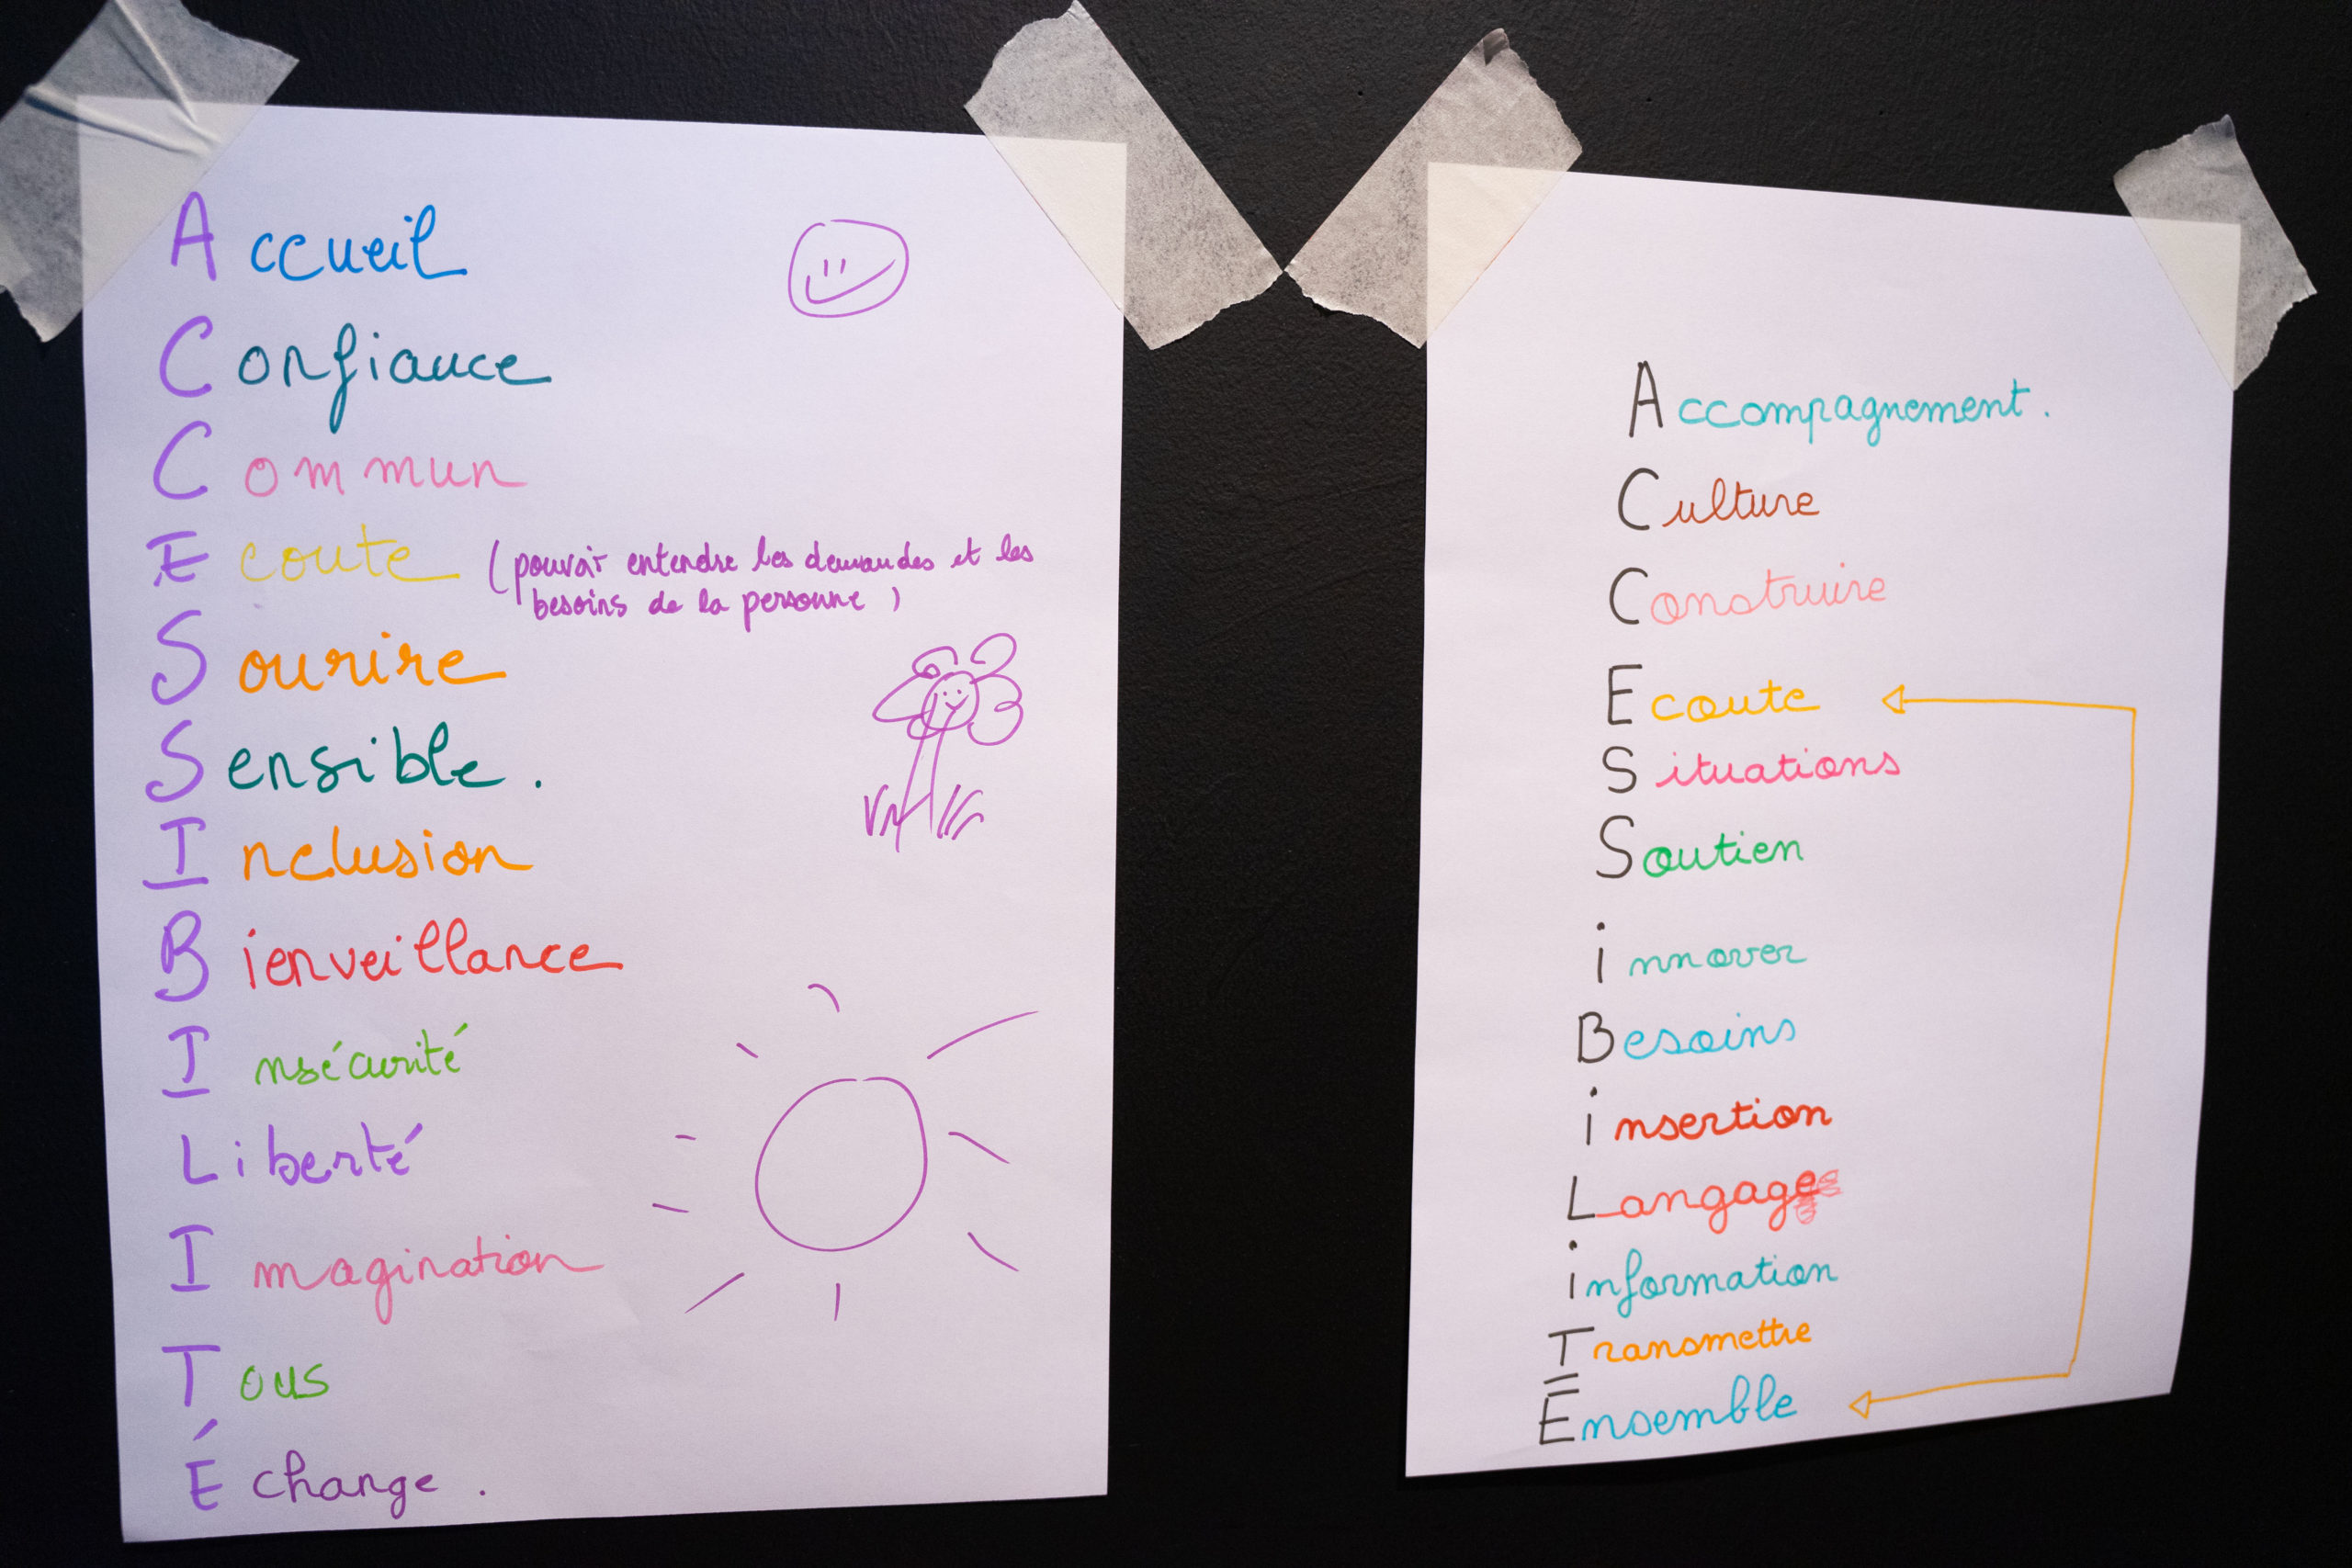 Accueil
Confiance
Commun
Ecoute (pouvoir entendre les demandes et les
besoins de la personne)
Sourire
Sensible.
Inclusion
Bienveillance
Insécurité
Liberté
Imagination
Tous
Échange.
Accompagnement.
Culture
Construire
Ecoute
Situations
Soutien
innover
Besoins
insertion
Langage
information
Transmettre
Ensemble